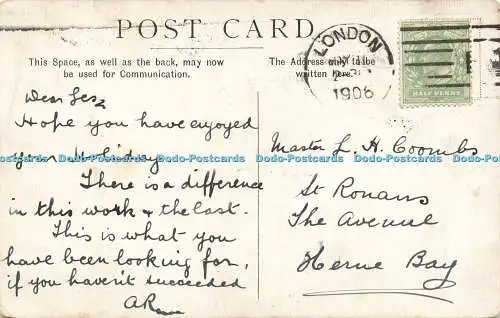 POST CARD
This Space, as well as the back, may now
be used for Communication.
The Address only to be
written Here.
LONDON
1906
HALF PENNY
Dear Les
Hope you have enjoyed
your Holiday
There is a difference
in this work & the last.
This is what you
have been looking for,
if you haven't succeeded
Master L. H. Coombs
St Ronans
The Avenue
Herne Bay
Dodo-Postcards Dodo-Postcards Dodo-Postcards Dodo-Postcards Dodo-Postcards